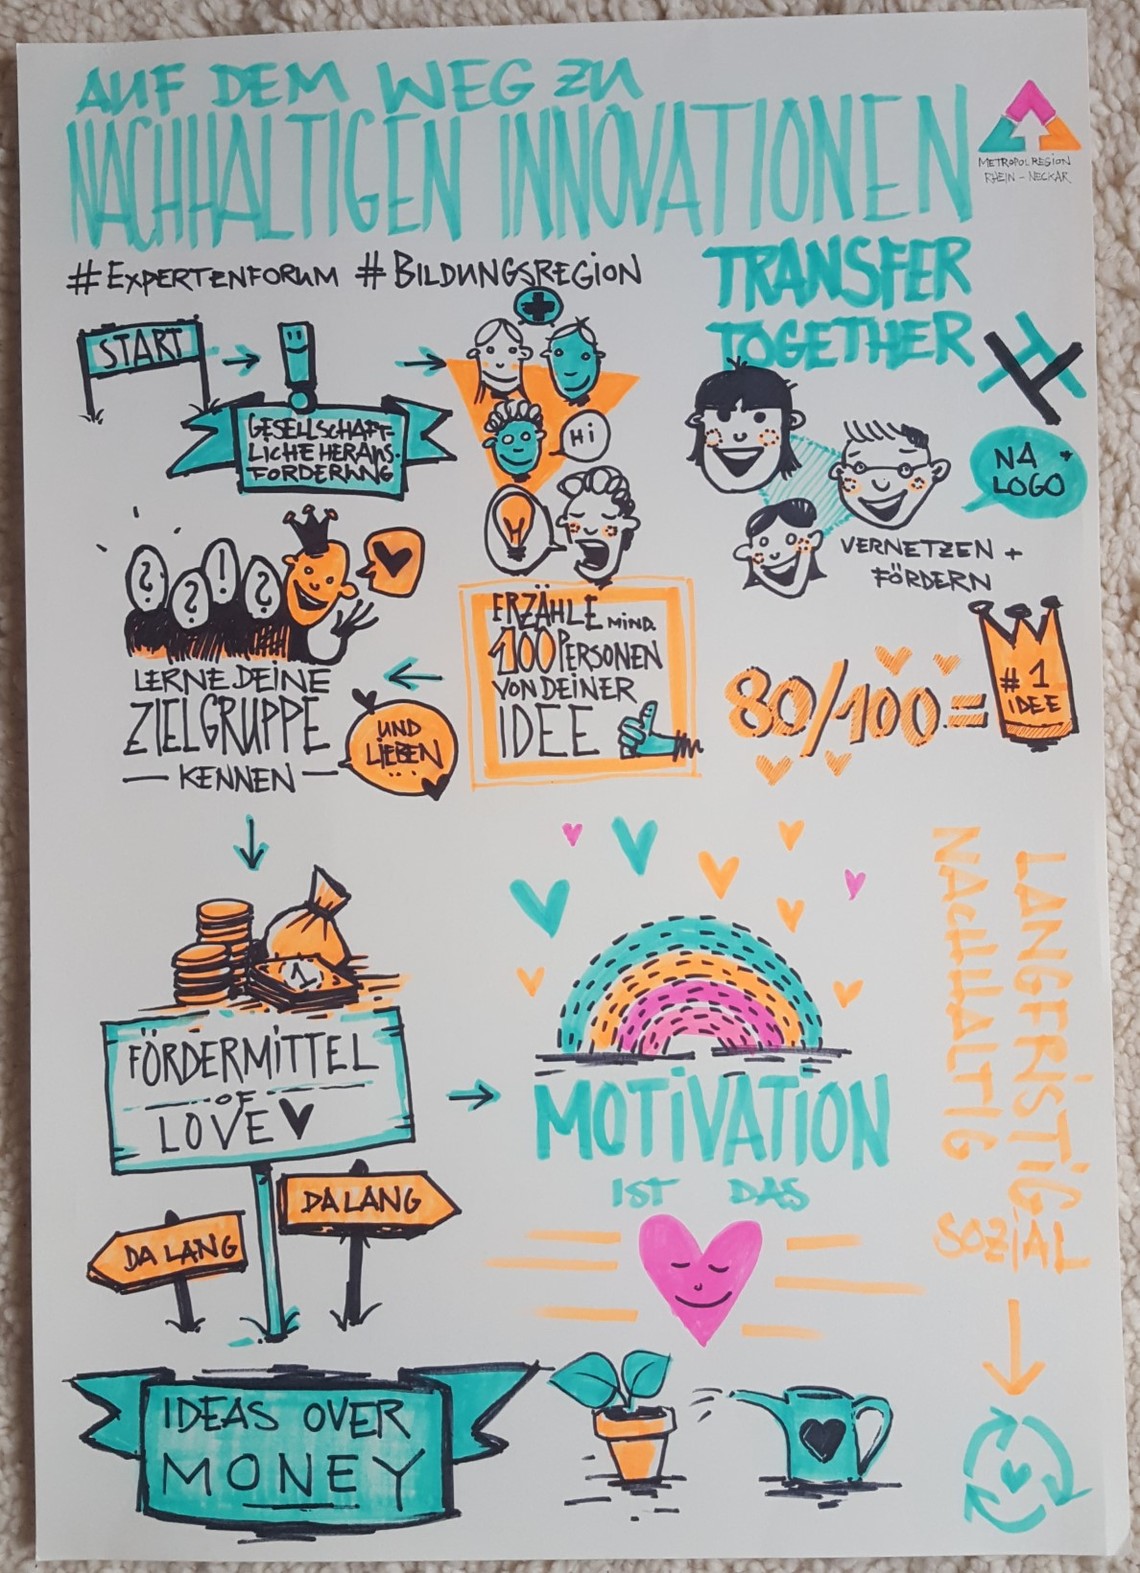 AUF DEM WEG ZU
NACHHALTIGEN INNOVATIONEN
METROPOLREGION
RHEIN - NECKAR
#EXPERTENFORUM #BILDUNGSREGION
TRANSFER
TOGETHER
START
!
GESELLSCHAFT-
LICHE HERAUS-
FORDERUNG
HI
NA
LOGO
VERNETZEN +
FÖRDERN
? ? ! ?
LERNE DEINE
ZIELGRUPPE
— KENNEN —
UND
LIEBEN
...
ERZÄHLE MIND.
100 PERSONEN
VON DEINER
IDEE
80/100 =
#1
IDEE
1
FÖRDERMITTEL
— OF —
LOVE ♥
DA LANG
DA LANG
MOTIVATION
IST DAS
LANGFRISTIG
NACHHALTIG
SOZIAL
IDEAS OVER
MONEY